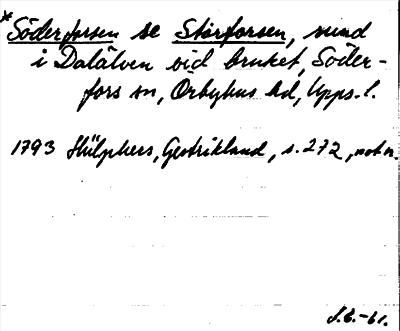 *Söderforsen se Storforsen, sund
i Dalälven vid bruket, Söder-
fors sn, Örbyhus hd, Upps. l.
1793 Hülphers, Gestrikland, s. 272, not n.
J.E.-61.